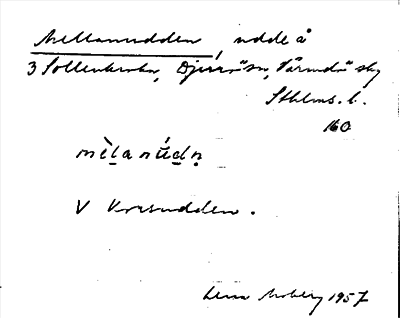 Mellanudden, udde å
3 Sollenkroka, Djurö sn, Värmdö skg
Sthlms. l.
160
mèlanúdn
V Korsudden.
Lena Moberg 1957